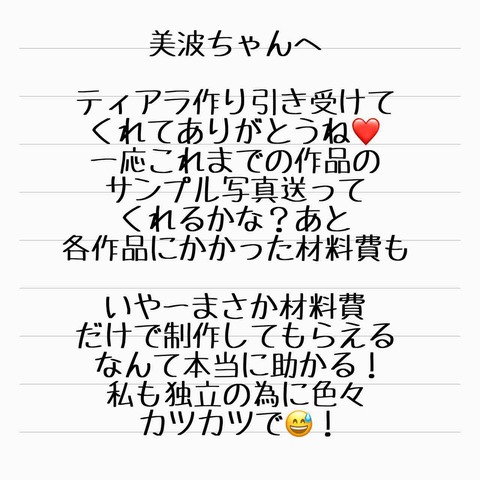 美波ちゃんへ
ティアラ作り引き受けて
くれてありがとうね❤️
一応これまでの作品の
サンプル写真送って
くれるかな？あと
各作品にかかった材料費も
いやーまさか材料費
だけで制作してもらえる
なんて本当に助かる！
私も独立の為に色々
カツカツで😅！